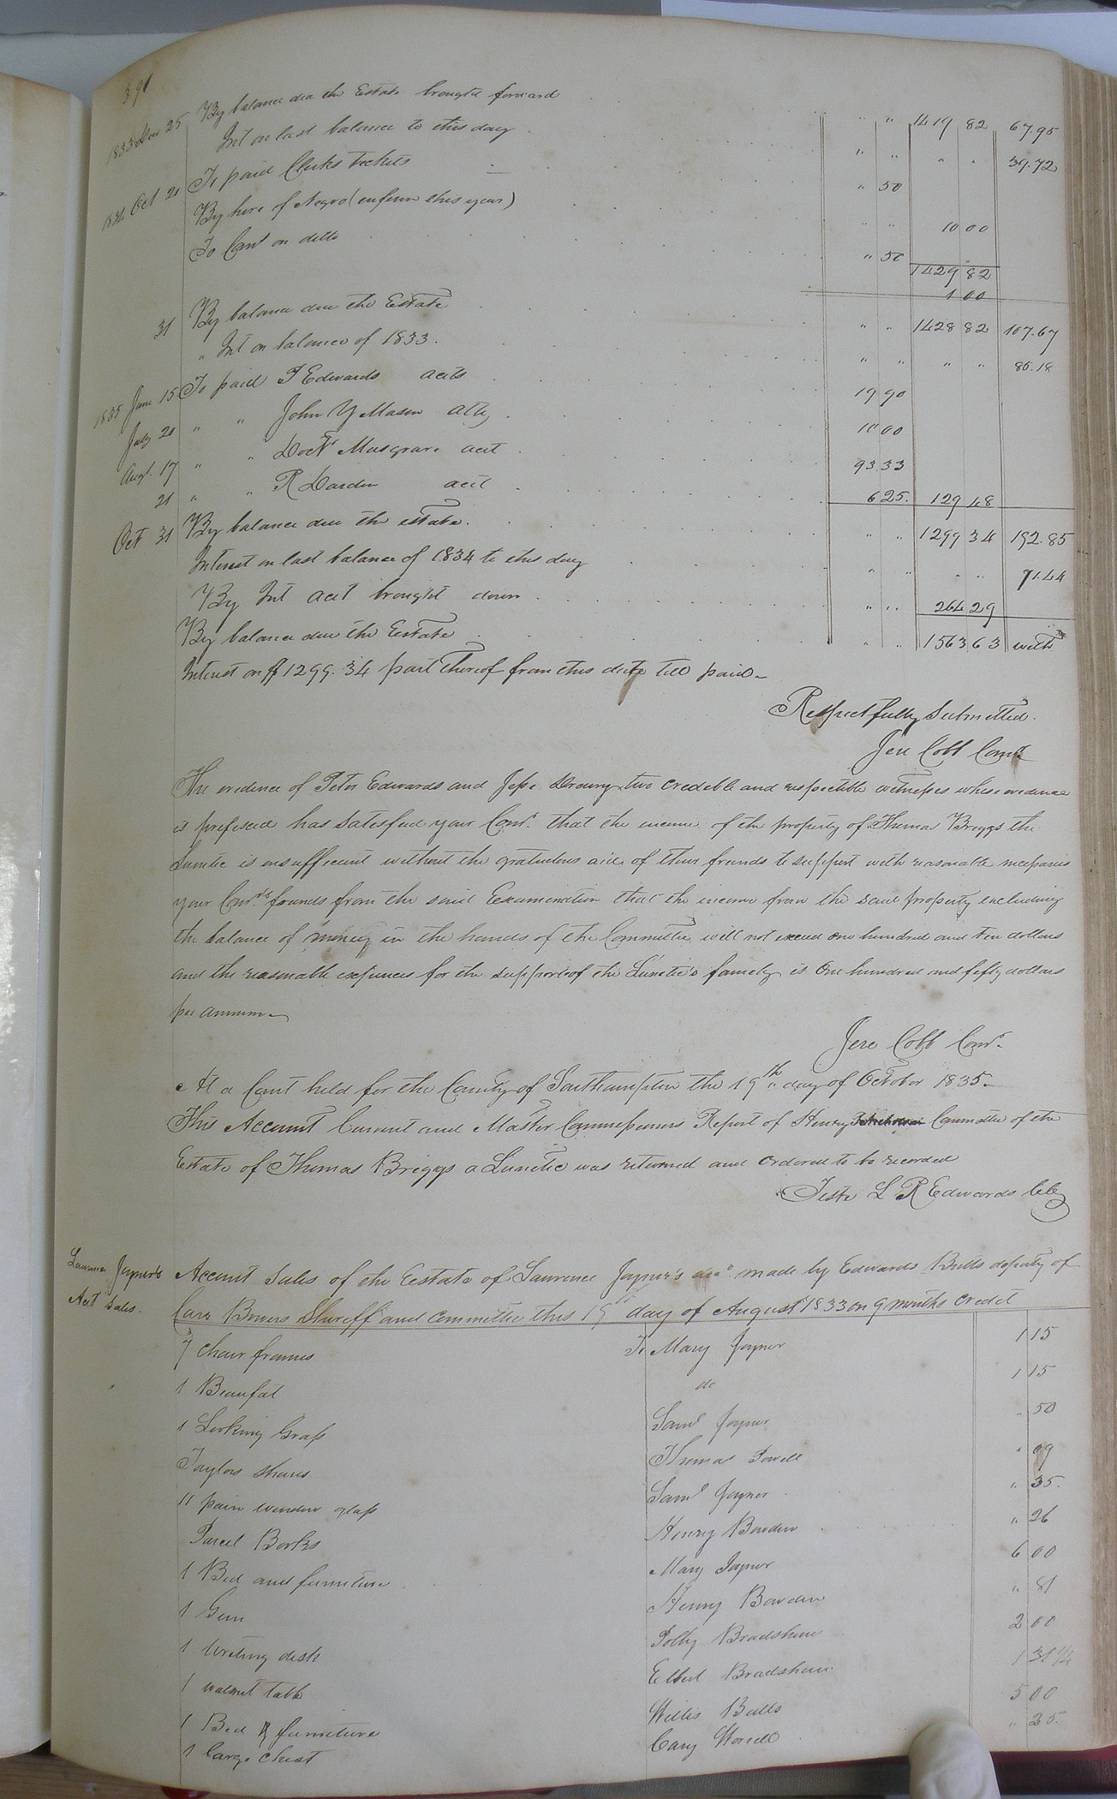 391
1833 Dec 25 By balance due the Estate brought forward " " 1419 82 67.95
Int on last balance to this day " " " " 39.72
1834 Oct 21 To paid Clerks tickets " 50
By hire of Negro (infirm this year) " " 10 00
To Comr on ditto " 50
1429 82
1 00
31 By balance due the Estate " " 1428 82 107.67
" Int on balance of 1833. " " " " 85.18
1835 June 15 To paid P Edwards acct 19 90
July 21 " " John Y Mason atty 10 00
Augt. 17 " " Doctr Musgrave acct 93 33
21 " " R Darden acct 6 25. 129 48
Oct 31 By balance due the estate. " " 1299 34 192.85
Interest on last balance of 1834 to this day " " " " 71.44
By Int acct brought down " " 264 29
By balance due the Estate " " 1563 63 with
Interest on $1299.34 part thereof from this date till paid
Respectfully Submitted.
Jere Cobb Comr
The evidence of Peter Edwards and Jesse two credible and respectable witnesses whose evidence
is prefixed has satisfied your Comr. that the income of the property of Thomas Briggs the
Lunatic is insufficient without the gratuitous aid of their friends to support with reasonable
your Comr. founds from the said Examination that the income from the said property excluding
the balance of money in the hands of the Committee will not exceed one hundred and ten dollars
and the reasonable expences for the support of the Lunatic's family is One hundred and fifty dollars
per annum
Jere Cobb Comr.
At a Court held for the County of Southampton the 19th day of October 1835.
This Account Current and Master Commissioners Report of Henry Committee of the
Estate of Thomas Briggs a Lunatic was returned and Ordered to be recorded
Teste L R Edwards Clk
Lawrence Joyner's Acct Sales.
Account Sales of the Estate of Lawrence Joyner's decd made by Edwards Butts deputy of
Carr Bowers Sheriff and committee this 19th day of August 1833 on 9 months credit
7 chair frames To Mary Joyner 1 15
1 Beaufat do 1 15
1 Looking Glass Saml Joyner " 50
Taylors shears Thomas Powell " 09
11 pain window glass Saml Joyner " 35.
Parcel Books Henry Bowden " 26
1 Bed and furniture Mary Joyner 6 00
1 Gun Henry Bowden " 81
1 Writing desk Polly Bradshaw 2 00
1 walnut table Elbert Bradshaw 1 31 1/4
1 Bed & furniture Willis Butts 5 00
1 large chest Cary Worrell " 35.